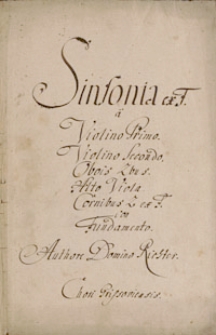 Sinfonia ex F.
à
Violino Primo.
Violino Secondo.
Obois 2bus.
Alto Viola
Cornibus 2 ex F.
con
Fundamento.
Authore Domino Riester.
Chori